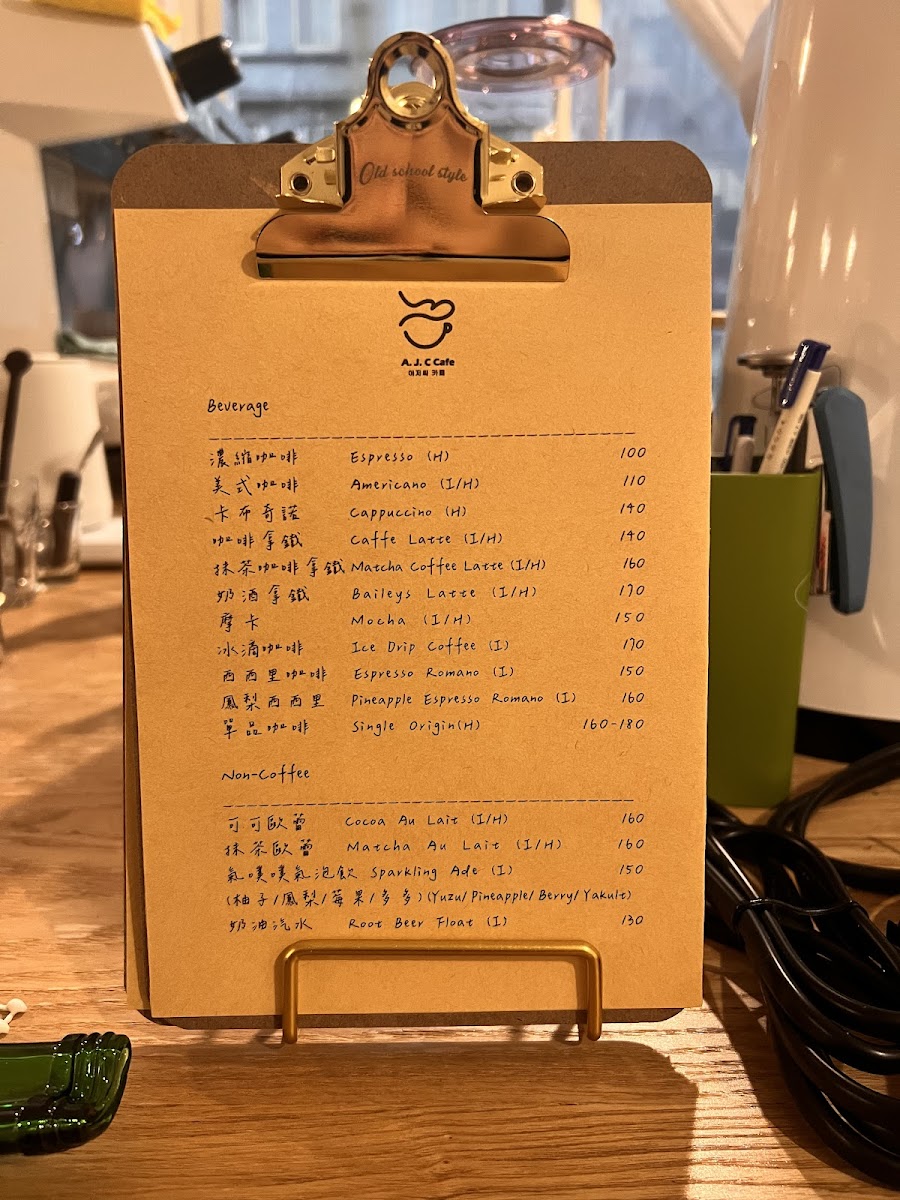 Old school style
A. J. C Cafe
아저씨 카페
Beverage
濃縮咖啡 Espresso (H) 100
美式咖啡 Americano (I/H) 110
卡布奇諾 Cappuccino (H) 140
咖啡拿鐵 Caffe Latte (I/H) 140
抹茶咖啡拿鐵 Matcha Coffee Latte (I/H) 160
奶酒拿鐵 Baileys Latte (I/H) 170
摩卡 Mocha (I/H) 150
冰滴咖啡 Ice Drip Coffee (I) 170
西西里咖啡 Espresso Romano (I) 150
鳳梨西西里 Pineapple Espresso Romano (I) 160
單品咖啡 Single Origin(H) 160-180
Non-Coffee
可可歐蕾 Cocoa Au Lait (I/H) 160
抹茶歐蕾 Matcha Au Lait (I/H) 160
氣噗噗氣泡飲 Sparkling Ade (I) 150
(柚子/鳳梨/莓果/多多)(Yuzu/Pineapple/Berry/Yakult)
奶油汽水 Root Beer Float (I) 130